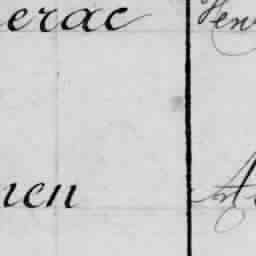 erac Hen
nen A